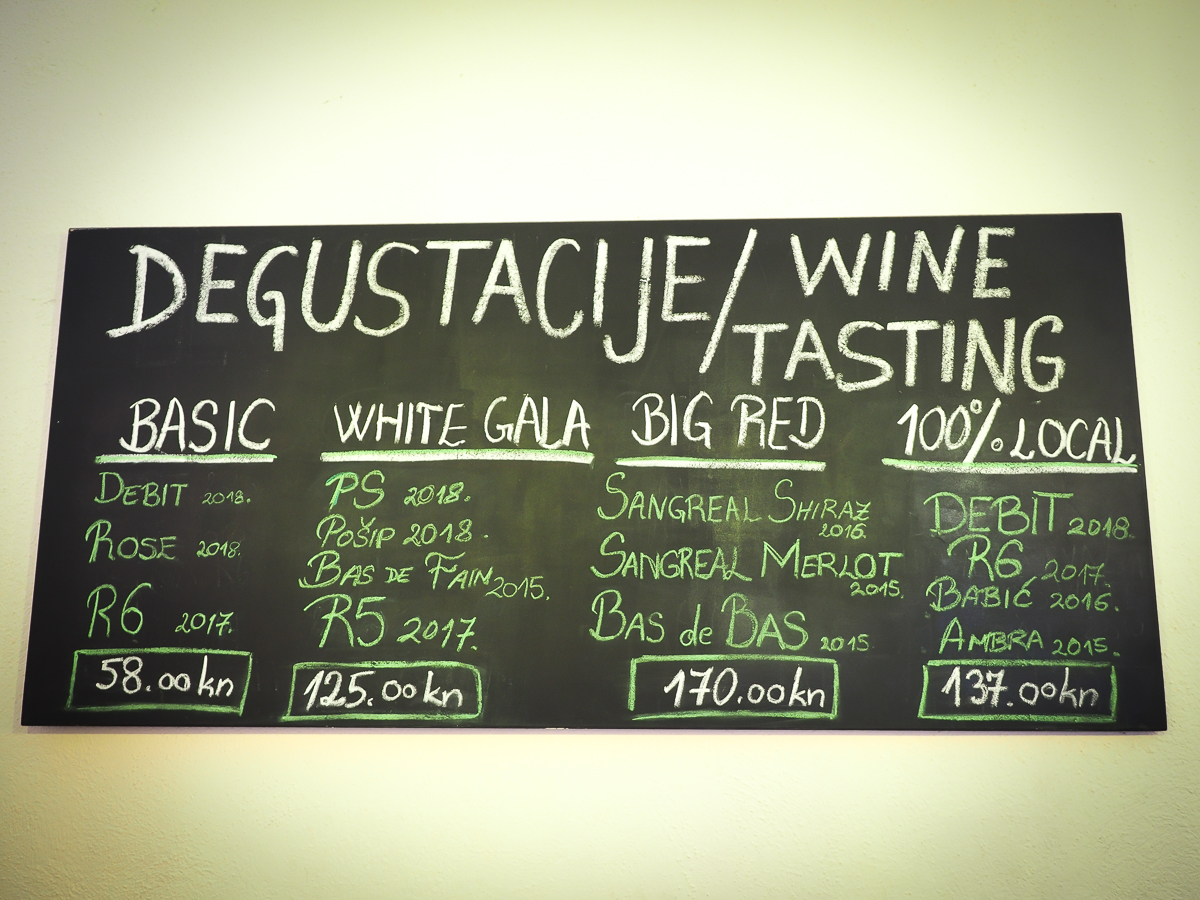 DEGUSTACIJE/ WINE
TASTING
BASIC
DEBIT 2018.
ROSE 2018.
R6 2017.
58.00kn
WHITE GALA
PS 2018.
POŠIP 2018.
BAS DE FAIN 2015.
R5 2017.
125.00kn
BIG RED
SANGREAL SHIRAZ
2016.
SANGREAL MERLOT
2015.
BAS de BAS 2015
170.00kn
100% LOCAL
DEBIT 2018.
R6 2017.
BABIĆ 2016.
AMBRA 2015.
137.00kn